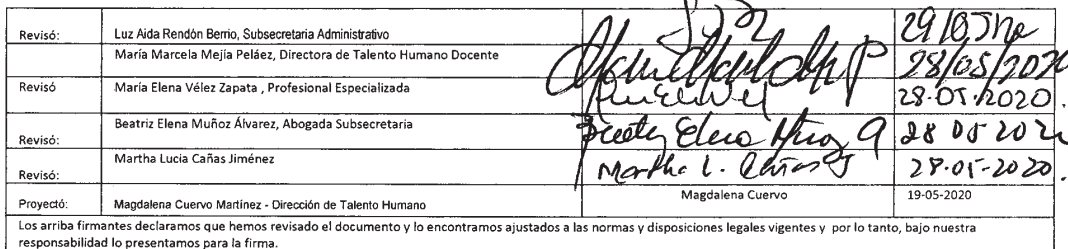 Revisó: Luz Aida Rendón Berrio, Subsecretaria Administrativo
María Marcela Mejía Peláez, Directora de Talento Humano Docente 28/05/2020
Revisó María Elena Vélez Zapata , Profesional Especializada 28-05-2020.
Beatriz Elena Muñoz Álvarez, Abogada Subsecretaria Beatriz Elena Muñoz A 28 05 2020
Revisó:
Martha Lucia Cañas Jiménez Martha L. Cañas J 28-05-2020.
Revisó:
Proyectó: Magdalena Cuervo Martínez - Dirección de Talento Humano Magdalena Cuervo 19-05-2020
Los arriba firmantes declaramos que hemos revisado el documento y lo encontramos ajustados a las normas y disposiciones legales vigentes y por lo tanto, bajo nuestra
responsabilidad lo presentamos para la firma.